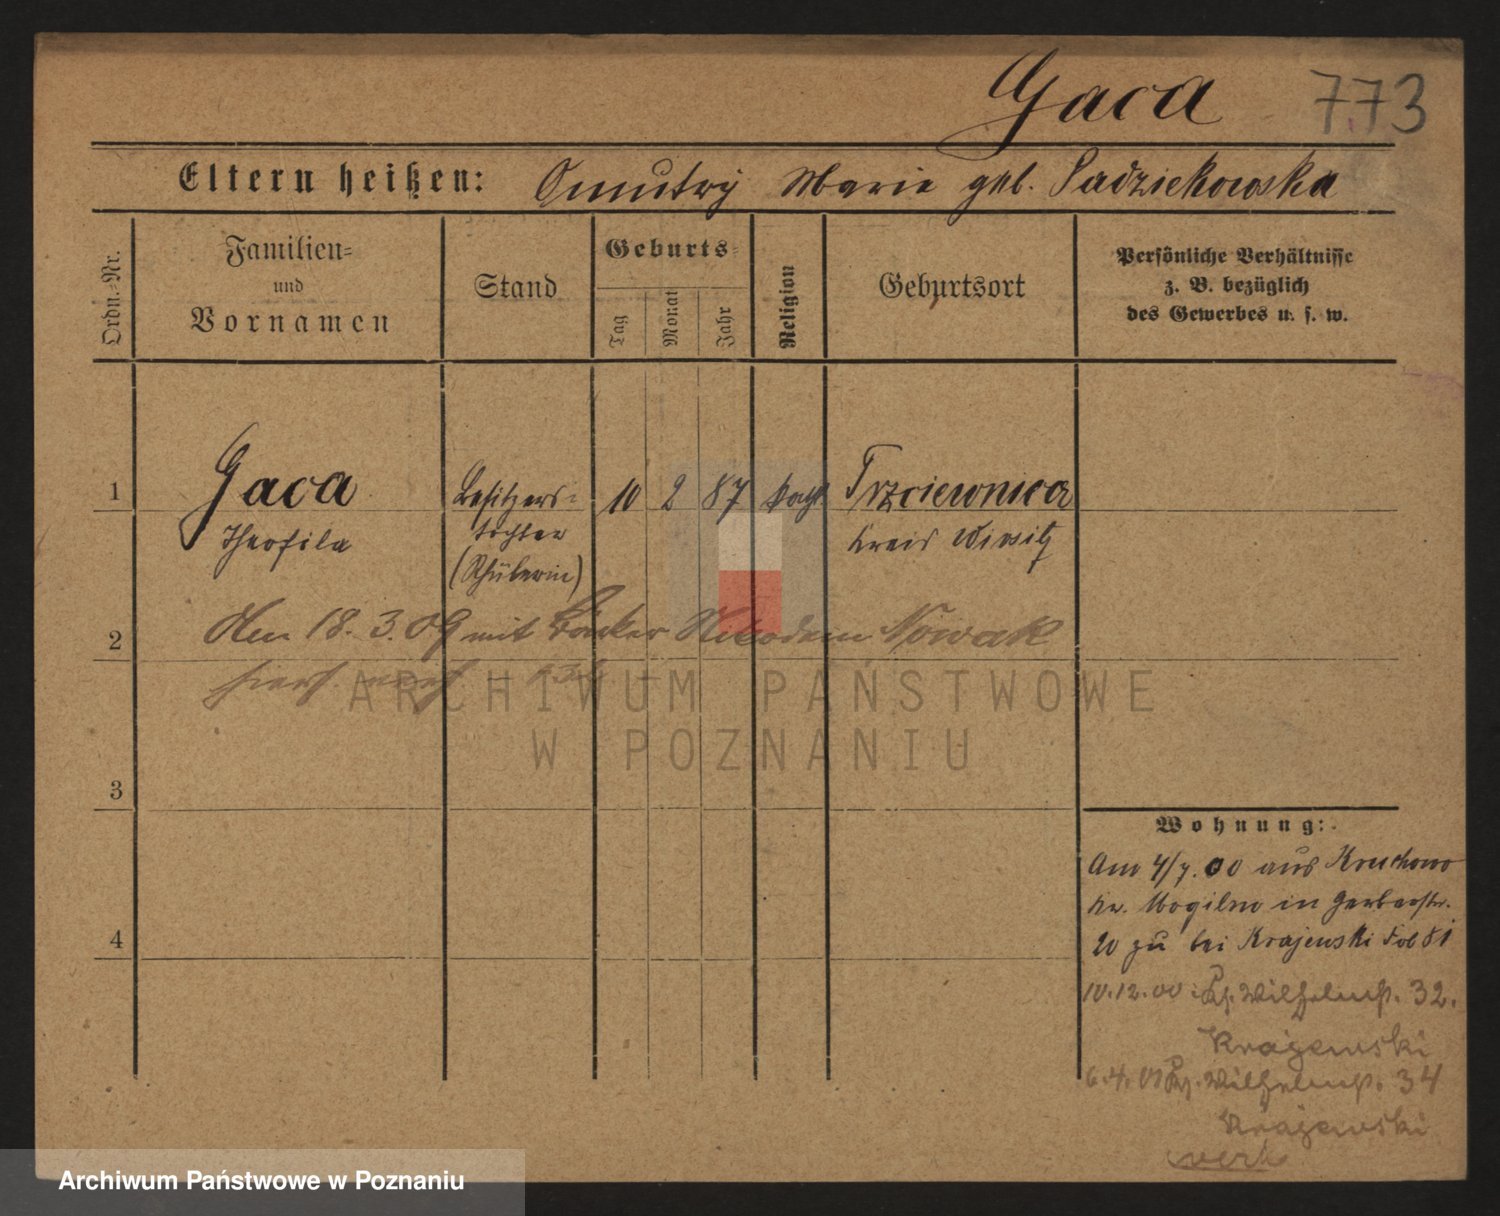 Gaca 773
Eltern heißen: Dmutry Marie geb. Sadziekowska
Ordn.-Nr.
Familien-
und
Vornamen
Stand
Geburts-
Tag
Monat
Jahr
Religion
Geburtsort
Persönliche Verhältnisse
z. B. bezüglich
des Gewerbes u. s. w.
1 Gaca Besitzers- 10 2 87 kath Trzciewnica
Theofila tochter Kreis Wirsitz
(Schülerin)
2 Am 18.3.09 mit Bäcker Nikodem Nowak
hier
ARCHIWUM PAŃSTWOWE
W POZNANIU
3
Wohnung:
Am 4/7.00 aus Kruchowo
Kr. Mogilno in Gerberstr.
20 zu bei Krajewski
4
10.12.00 Wilhelmstr. 32.
Krajewski
6.4.01 Wilhelmstr. 34
Krajewski
verh
Archiwum Państwowe w Poznaniu